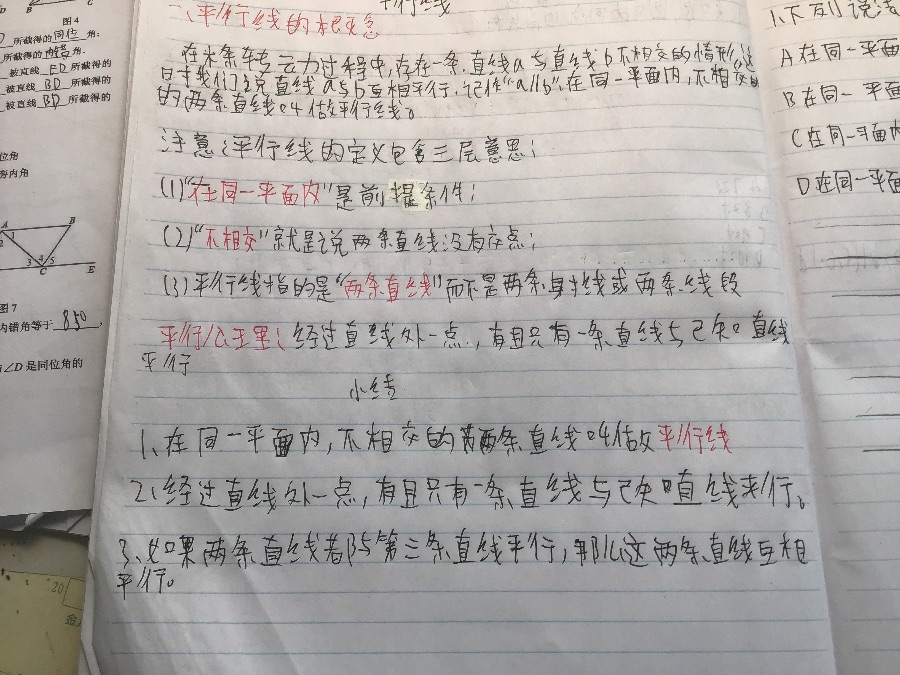 图4
所截得的同位角;
所截得的内错角.
被直线 ED 所截得的
被直线 BD 所截得的
被直线 BD 所截得的
位角
旁内角
A
B
1
2
3
4
5
C
E
图7
内错角等于 85°
∠D 是同位角的
平行线
一、平行线的概念
在木条转动过程中,存在一条直线a与直线b不相交的情形,这
时我们说直线a与b互相平行.记作"a∥b".在同一平面内,不相交
的两条直线叫做平行线。
注意:平行线的定义包含三层意思;
(1)"在同一平面内"是前提条件;
(2)"不相交"就是说两条直线没有交点;
(3)平行线指的是"两条直线"而不是两条射线或两条线段
平行公理:经过直线外一点,有且只有一条直线与已知直线
平行
小结
1、在同一平面内,不相交的两条直线叫做平行线
2、经过直线外一点,有且只有一条直线与已知直线平行。
3、如果两条直线都与第三条直线平行,那么这两条直线互相
平行。
1、下列说法
A 在同一平面
B 在同一平面
C 在同一平面内
D 在同一平面
20